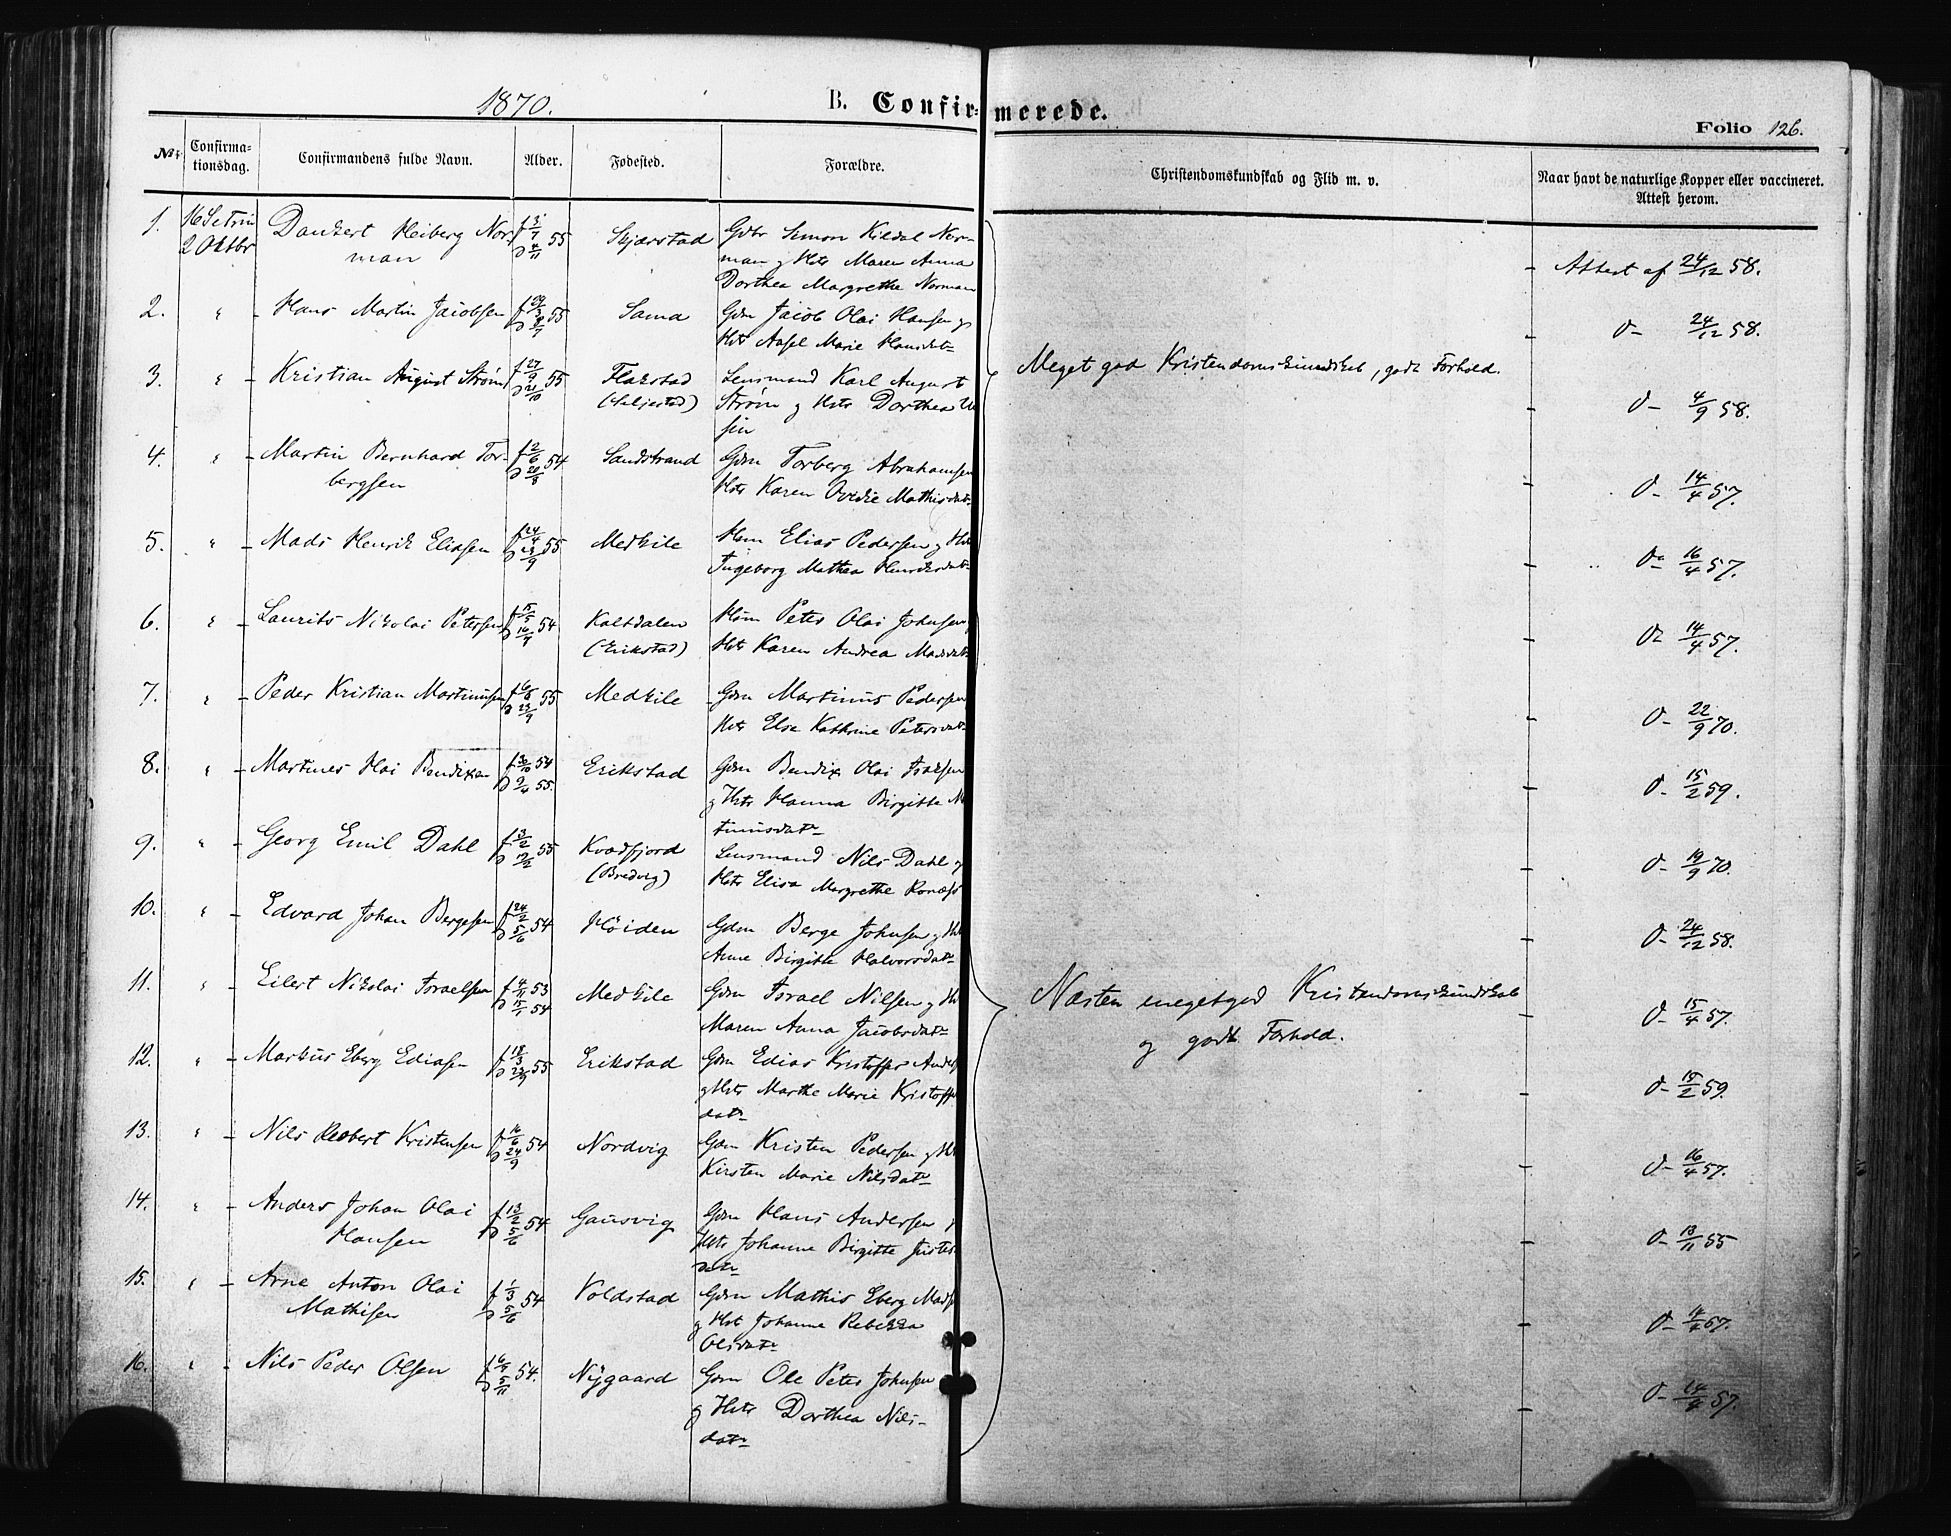 1870.
B. Confirmerede.
Folio 126.
No.
Confirmationsdag.
Confirmandens fulde Navn.
Alder.
Fødested.
Forældre.
Christendomskundskab og Flid m. v.
Naar havt de naturlige Kopper eller vaccineret.
Attest herom.
1. 16 S e Trin 2 Oktbr Dankert Heiberg Norman 55 Skjærstad
Simon Kildal Norman og Hstr Maren Anna
Dorthea Margrethe Norman
Attest af 24/12 58.
2. " Hans Martin Jacobsen 55 Sama
Gdm Jacob Olai Hansen og
Hstr Marie Hansdatr
D- 24/12 58.
3. " Kristian August Strøm 55 Flakstad
Lensmand Karl August
Strøm og Hstr Dorthea
Meget god Kristendomskundskab, godt Forhold.
D- 4/9 58.
4. " Martin Bernhard Torbergsen f 2/6 54 Sandstrand
Gdm Torberg Abrahamsen
Hstr Karen Mathisdatr
D- 14/4 57.
5. " Mads Henrik Eliasen f 24/4 55 Medkile
Hsm Elias Pedersen og Hst
Ingeborg Mathea Henriksdatr
D- 16/4 57.
6. " Laurits Nikolai Petersen f 15/5 54 Kaltdalen
(Erikstad)
Hsm Peter Olai Johnsen
Hstr Karen Andrea Madsdatr
D- 14/4 57.
7. " Peder Kristian Martinusen 55 Medkile
Gdm Martinus Pedersen
Hstr Else Kathrine Petersdatr
D- 22/9 70.
8. " Martines Bendixen f 30/10 54 55. Erikstad
Gdm Bendix Olai
og Hstr Hanna Birgitte
D- 15/2 59.
9. " Georg Emil Dahl f 3/2 55 Kvædfjord
(Bredvig)
Lensmand Nils Dahl og
Hstr Elisa Margrethe
D- 19/9 70.
10. " Edvard Johan Bergesen f 24/2 D 5/6 54 Høiden
Gdm Berge Johnsen og Hst
Anne Birgitte Halvorsdatr
D- 24/12 58.
11. " Eilert Nikolai Israelsen f 4/11 53 D 15/1 54 Medkile
Gdm Israel Nilsen og Hst
Maren Anna Jacobsdatr
Næsten megetgod Kristendomskundskab
og godt Forhold.
D- 15/4 57.
12. " Markus Eberg Ediasen f 18/3 55 Erikstad
Gdm Edias Kristoffer
og Hstr Marthe Marie
datr
D- 15/2 59.
13. " Nils Kristensen f 16/6 D 24/9 54 Nordvig
Gdm Kristen Pedersen og Hst
Kirsten Marie Nilsdatr
D- 16/4 57.
14. " Anders Johan Olai
Hansen f 13/2 D 5/6 54 Gausvig
Gdm Hans Andersen
Hstr Johanne Birgitte
datr
D- 13/11 55
15. " Arne Anton Olai
Mathisen f 1/3 D 5/6 54 Voldstad
Gdm Mathis Eberg
og Hst Johanne Rebekka
Olsdatr
D- 57.
16. " Nils Peder Olsen D 5/11 54. Nygaard
Gdm Ole Peter Johnsen
og Hstr Dorthea Nilsdatr
D- 57.